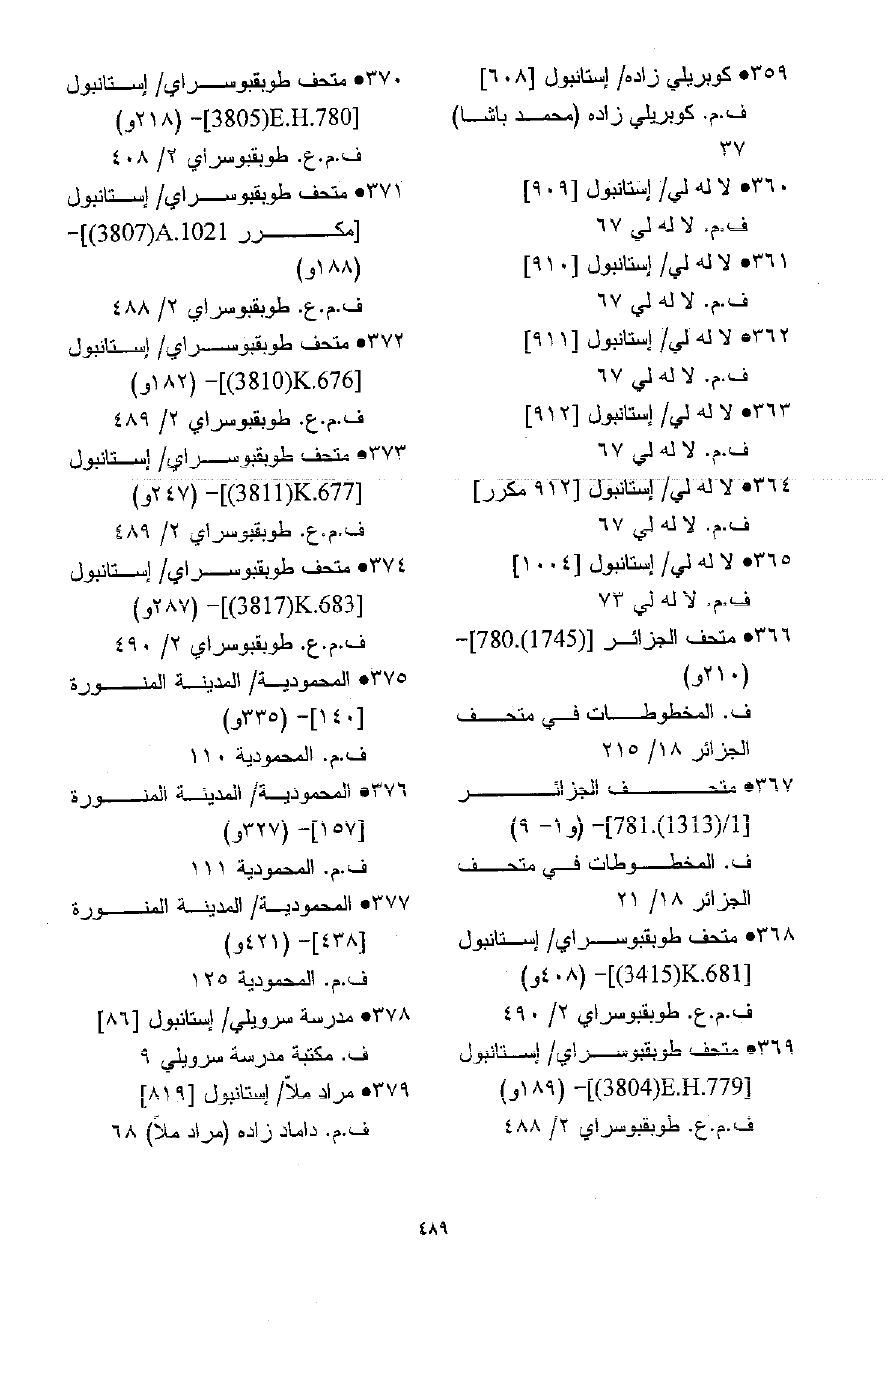 ٣٥٩• كوبريلي زاده/ إستانبول [٦٠٨]
ف.م. كوبريلي زاده (محمد باشا)
٣٧
٣٦٠• لا له لي/ إستانبول [٩٠٩]
ف.م. لا له لي ٦٧
٣٦١• لا له لي/ إستانبول [٩١٠]
ف.م. لا له لي ٦٧
٣٦٢• لا له لي/ إستانبول [٩١١]
ف.م. لا له لي ٦٧
٣٦٣• لا له لي/ إستانبول [٩١٢]
ف.م. لا له لي ٦٧
٣٦٤• لا له لي/ إستانبول [٩١٢ مكرر]
ف.م. لا له لي ٦٧
٣٦٥• لا له لي/ إستانبول [١٠٠٤]
ف.م. لا له لي ٧٣
٣٦٦• متحف الجزائر [780.(1745)]-
(٢١٠و)
ف. المخطوطات في متحف
الجزائر ١٨/ ٢١٥
٣٦٧• متحف الجزائر
[781.(1313)/1]- (و١- ٩)
ف. المخطوطات في متحف
الجزائر ١٨/ ٢١
٣٦٨• متحف طوبقبوسراي/ إستانبول
[3415)K.681)]- (٤٠٨و)
ف.م.ع. طوبقبوسراي ٢/ ٤٩٠
٣٦٩• متحف طوبقبوسراي/ إستانبول
[3804)E.H.779)]- (١٨٩و)
ف.م.ع. طوبقبوسراي ٢/ ٤٨٨
٣٧٠• متحف طوبقبوسراي/ إستانبول
[3805)E.H.780]- (٢١٨و)
ف.م.ع. طوبقبوسراي ٢/ ٤٠٨
٣٧١• متحف طوبقبوسراي/ إستانبول
[مكرر 3807)A.1021)]-
(١٨٨و)
ف.م.ع. طوبقبوسراي ٢/ ٤٨٨
٣٧٢• متحف طوبقبوسراي/ إستانبول
[3810)K.676)]- (١٨٢و)
ف.م.ع. طوبقبوسراي ٢/ ٤٨٩
٣٧٣• متحف طوبقبوسراي/ إستانبول
[3811)K.677)]- (٢٤٧و)
ف.م.ع. طوبقبوسراي ٢/ ٤٨٩
٣٧٤• متحف طوبقبوسراي/ إستانبول
[3817)K.683)]- (٢٨٧و)
ف.م.ع. طوبقبوسراي ٢/ ٤٩٠
٣٧٥• المحمودية/ المدينة المنورة
[١٤٠]- (٣٣٥و)
ف.م. المحمودية ١١٠
٣٧٦• المحمودية/ المدينة المنورة
[١٥٧]- (٣٢٧و)
ف.م. المحمودية ١١١
٣٧٧• المحمودية/ المدينة المنورة
[٤٣٨]- (٤٢١و)
ف.م. المحمودية ١٢٥
٣٧٨• مدرسة سرويلي/ إستانبول [٨٦]
ف. مكتبة مدرسة سرويلي ٩
٣٧٩• مراد ملاّ/ إستانبول [٨١٩]
ف.م. داماد زاده (مراد ملاّ) ٦٨
٤٨٩